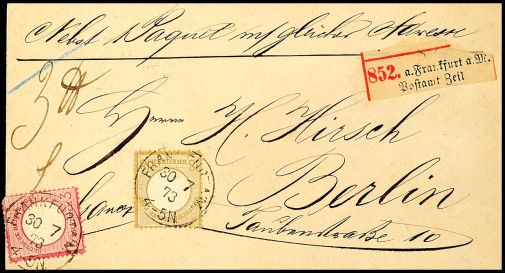 Nebst Paquet m/gleicher Adresse
852. a. Frankfurt a.M.
Postamt Zeil
3 ℔
Herrn H. Hirsch
Berlin
franco
Taubenstraße 10
FRANKFURT A.M.
30 7
73
4-5N
FRANKFURT A.M.
30 7
73
4-5N